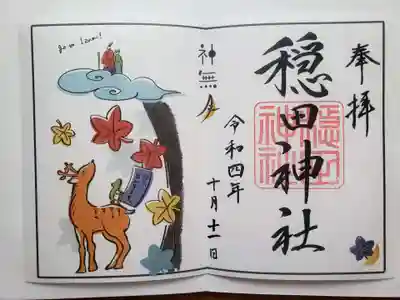 奉拝
穏田神社
穏田
神社
令和四年
十月十一日
神無月
go to Izumo!